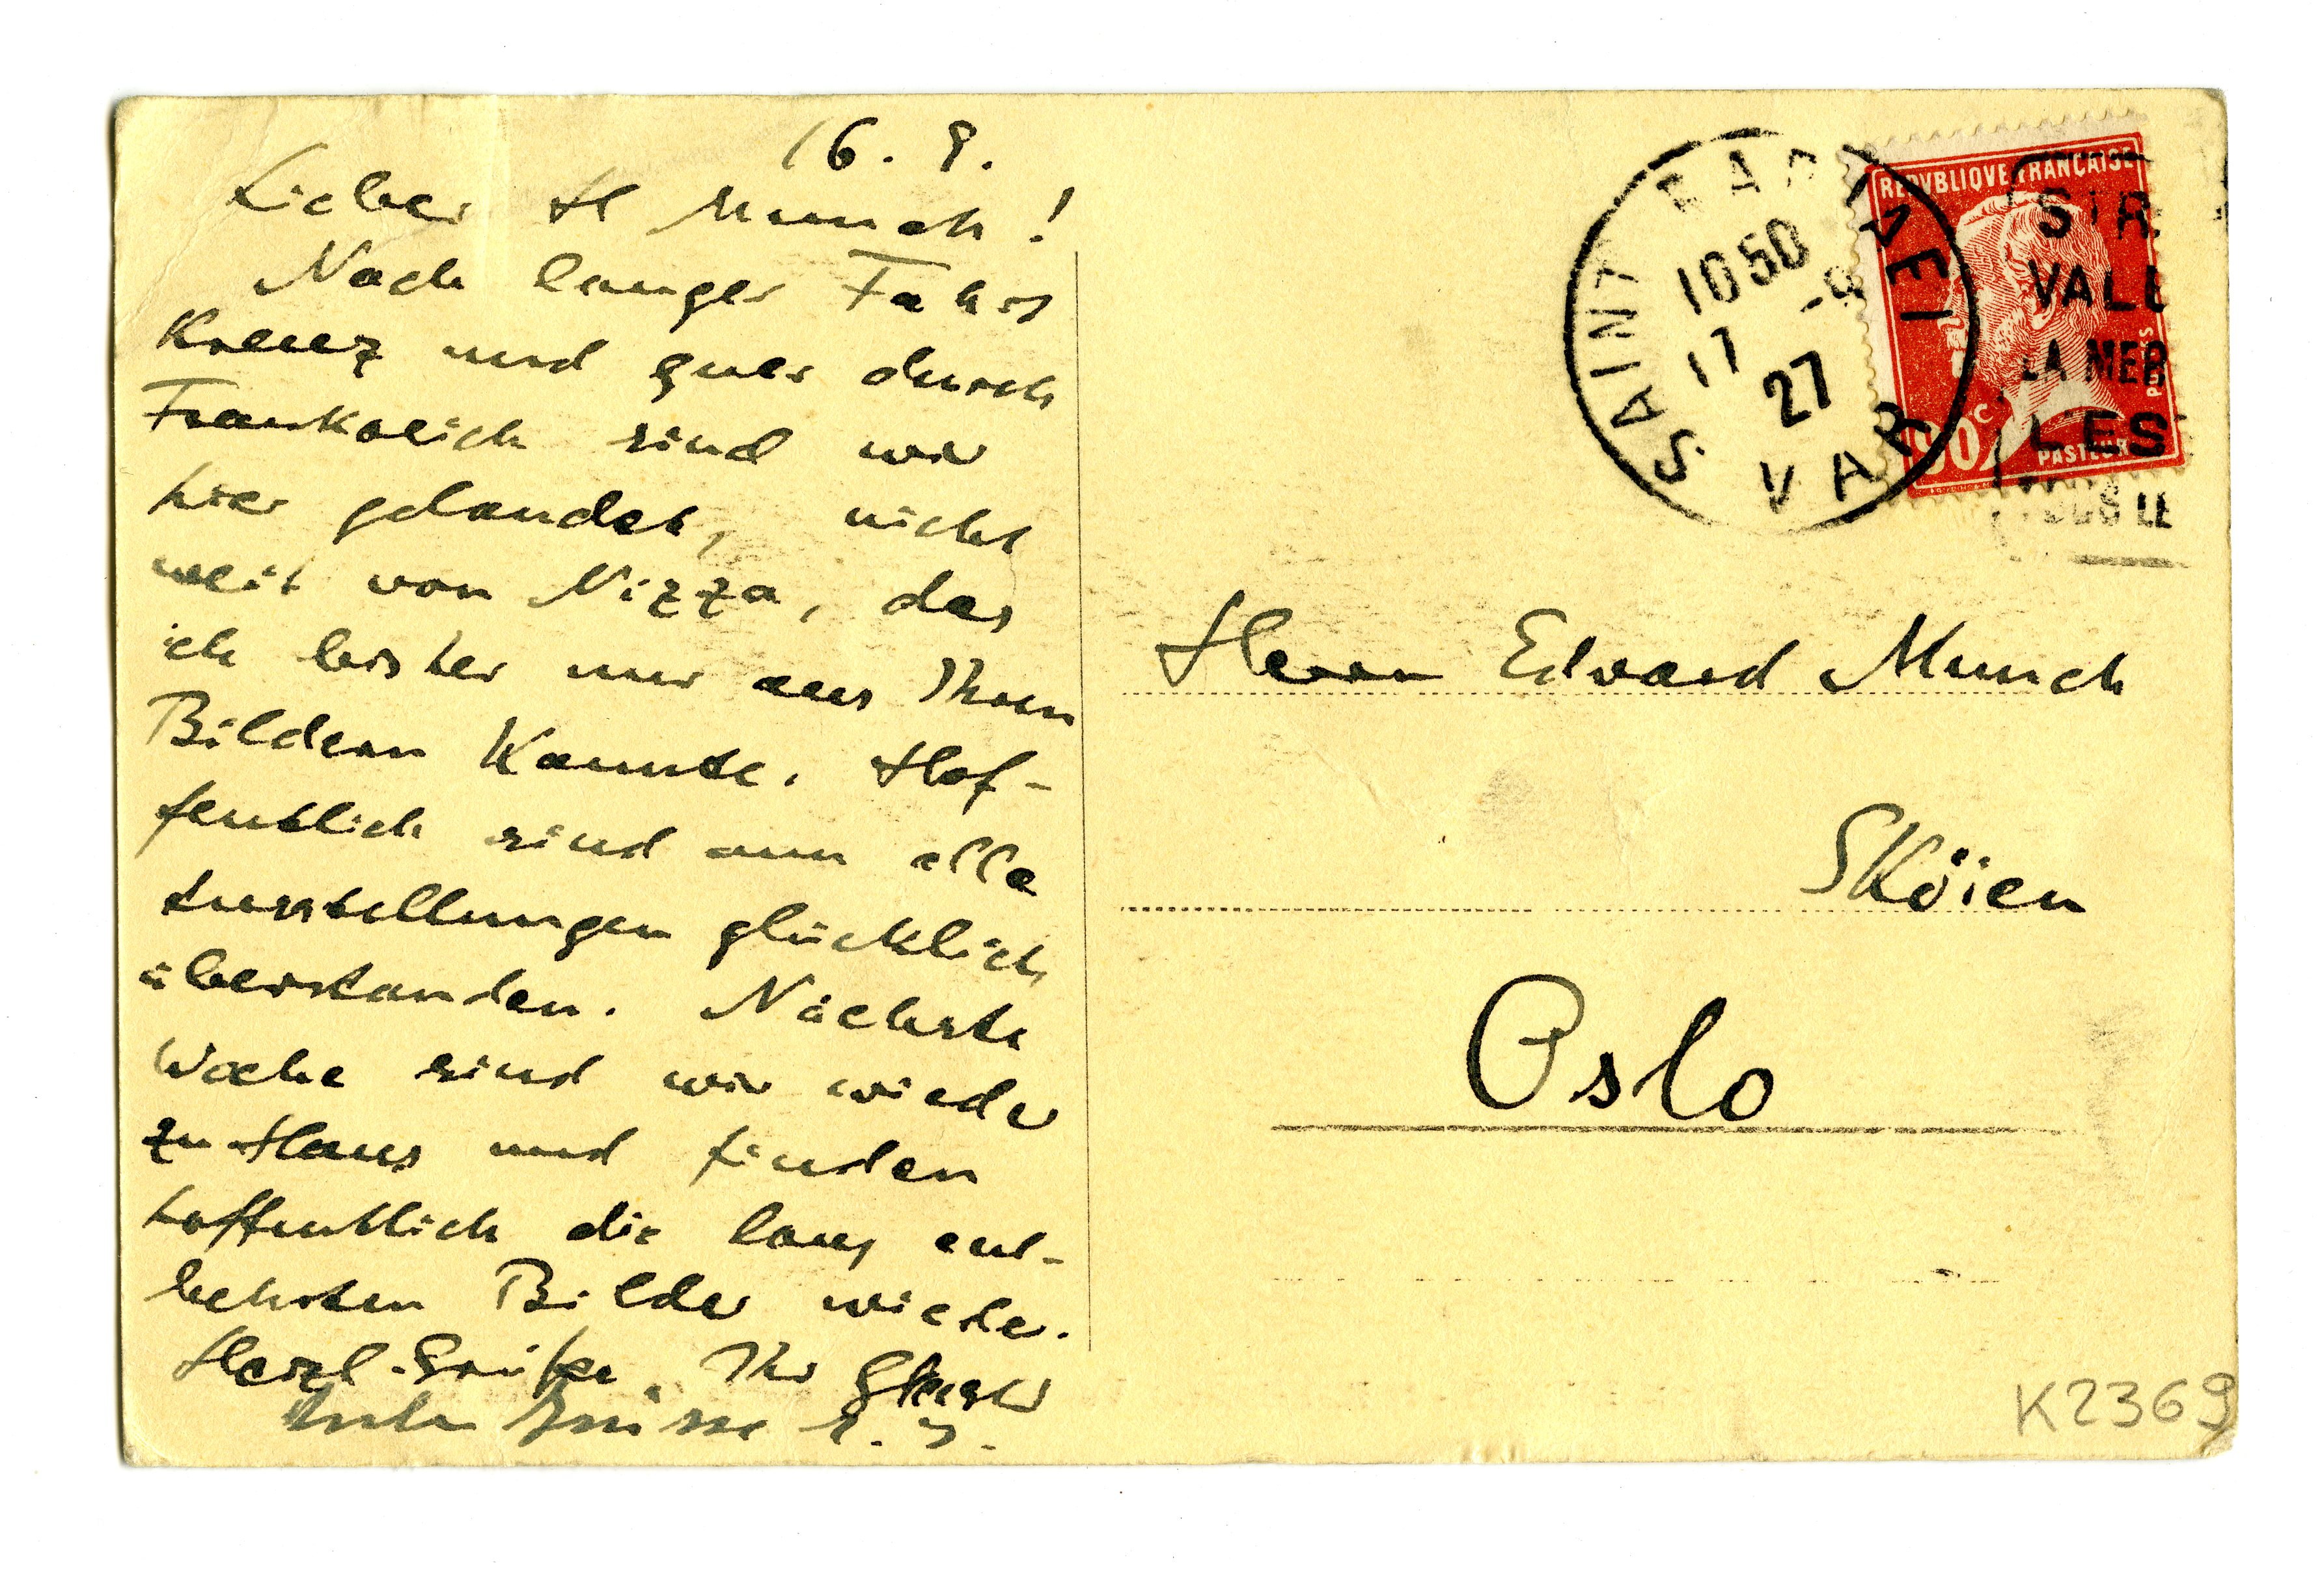 16. 9.
Lieber H Munch!
Nach langer Fahrt
Kreuz und quer durch
Frankreich sind wir
hier gelandet, nicht
weit von Nizza, das
ich bisher nur aus Ihren
Bildern kannte. Hof-
fentlich sind nun alle
Ausstellungen glücklich
überstanden. Nächste
Woche sind wir wieder
zu Haus und finden
hoffentlich die lang ent-
behrten Bilder wieder.
Herzl. Grüße. Ihr Glaser
Grüsse E. G.
SAINT RAPHAEL
10 50
17 -9
27
VAR
REPVBLIQVE FRANÇAISE
POSTES
90c
PASTEUR
VALE
LA MER
LES
Herrn Edvard Munch
Sköien
Oslo
K2369